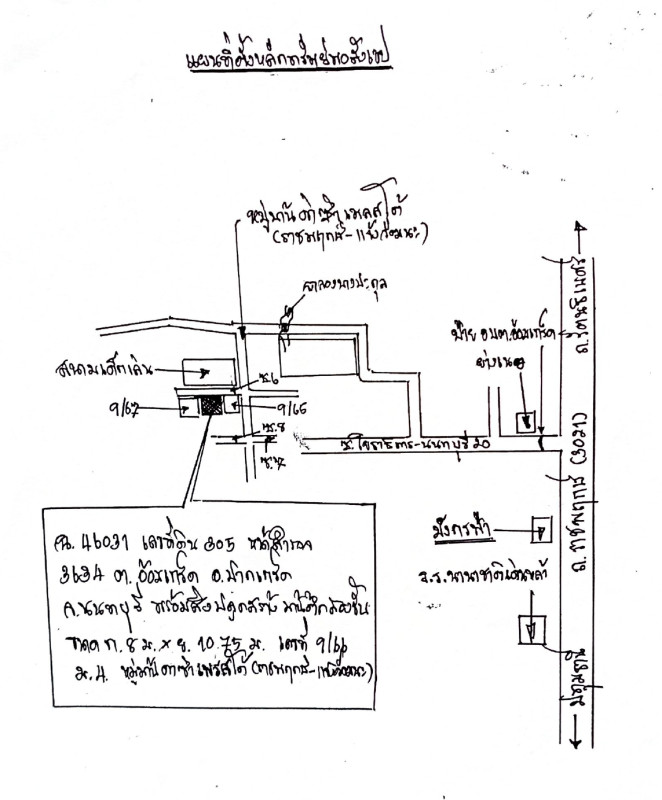 แผนที่ตั้งหลักทรัพย์พอสังเขป
หมู่บ้าน
(ราชพฤกษ์-แจ้งวัฒนะ)
คลองบางประดุล
สนามเด็กเล่น
ซ.6
9/67
9/65
ซ.8
ป้าย อบต.อ้อมเกร็ด
-นนทบุรี 20
ถ.รัตนธิเบศร์
ถ.ราชพฤกษ์ (3021)
ปทุมธานี
มังกรฟ้า
ร.ร.นานาชาติเด่นหล้า
ฉ. 46031 เลขที่ดิน 305 หน้าสำรวจ
3634 ต. อ้อมเกร็ด อ.ปากเกร็ด
จ.นนทบุรี พร้อมสิ่งปลูกสร้าง บ้านตึกสองชั้น
ขนาด ก. 8 ม. x ย. 10.75 ม. เลขที่ 9/66
ม.4. หมู่บ้าน (ราชพฤกษ์-แจ้งวัฒนะ)